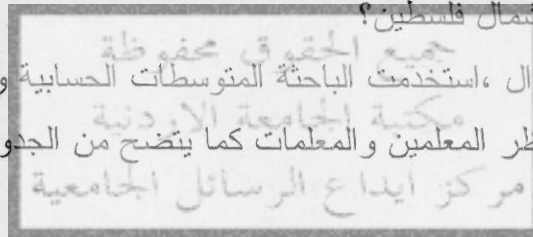 شمال فلسطين؟
جميع الحقوق محفوظة
ال ،استخدمت الباحثة المتوسطات الحسابية و
مكتبة الجامعة الاردنية
ظر المعلمين والمعلمات كما يتضح من الجدو
مركز ايداع الرسائل الجامعية